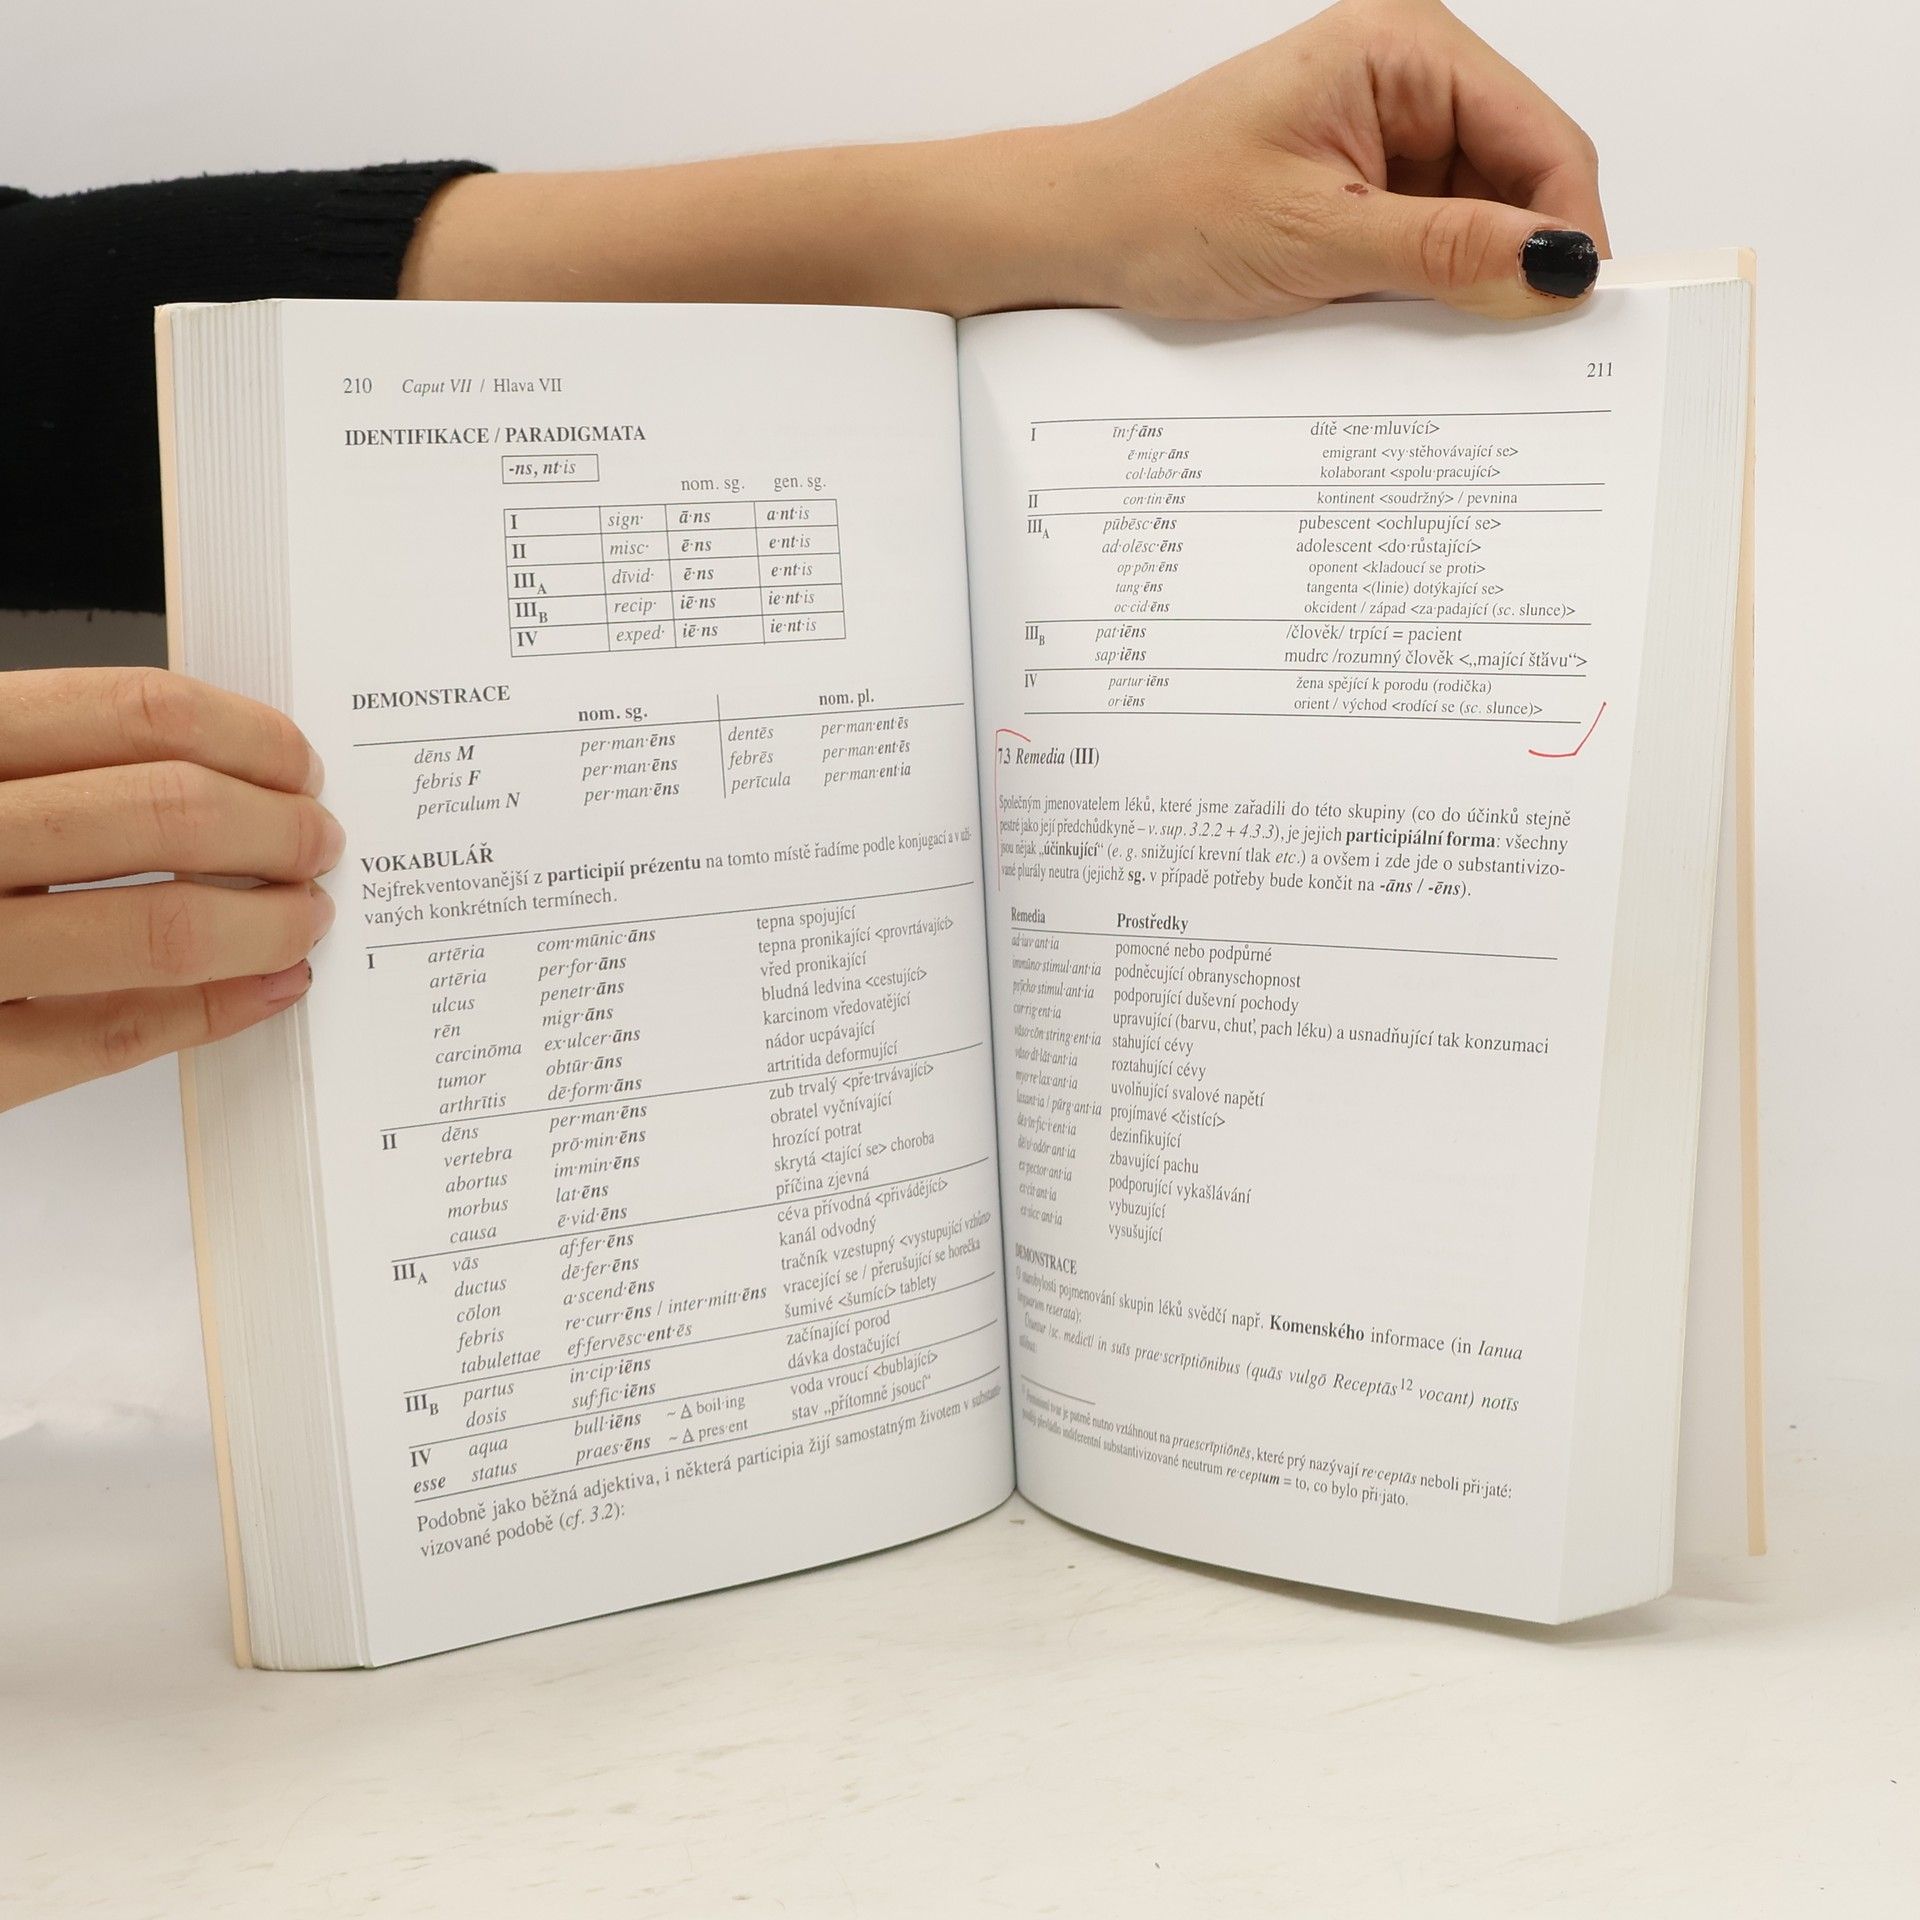 210 Caput VII / Hlava VII
IDENTIFIKACE / PARADIGMATA
-ns, nt·is
nom. sg. gen. sg.
I sign· ā·ns a·nt·is
II misc· ē·ns e·nt·is
III_A dīvid· ē·ns e·nt·is
III_B recip· iē·ns ie·nt·is
IV exped· iē·ns ie·nt·is
DEMONSTRACE
nom. sg. nom. pl.
dēns M per·man·ēns dentēs per·man·ent·ēs
febris F per·man·ēns febrēs per·man·ent·ēs
perīculum N per·man·ēns perīcula per·man·ent·ia
VOKABULÁŘ
Nejfrekventovanější z participií prézentu na tomto místě řadíme podle konjugací a v uží-
vaných konkrétních termínech.
I artēria com·mūnic·āns tepna spojující
artēria per·for·āns tepna pronikající <provrtávající>
ulcus penetr·āns vřed pronikající
rēn migr·āns bludná ledvina <cestující>
carcinōma ex·ulcer·āns karcinom vředovatějící
tumor obtūr·āns nádor ucpávající
arthrītis dē·form·āns artritida deformující
II dēns per·man·ēns zub trvalý <pře·trvávající>
vertebra prō·min·ēns obratel vyčnívající
abortus im·min·ēns hrozící potrat
morbus lat·ēns skrytá <tající se> choroba
causa ē·vid·ēns příčina zjevná
III_A vās af·fer·ēns céva přívodná <přivádějící>
ductus dē·fer·ēns kanál odvodný
cōlon a·scend·ēns tračník vzestupný <vystupující vzhůru>
febris re·curr·ēns / inter·mitt·ēns vracející se / přerušující se horečka
tabulettae ef·fervēsc·ent·ēs šumivé <šumící> tablety
III_B partus in·cip·iēns začínající porod
dosis suf·fic·iēns dávka dostačující
IV aqua bull·iēns ~ Δ boil·ing voda vroucí <bublající>
esse status praes·ēns ~ Δ pres·ent stav „přítomně jsoucí“
Podobně jako běžná adjektiva, i některá participia žijí samostatným životem v substanti-
vizované podobě (cf. 3.2):
211
I īn·f·āns dítě <ne·mluvící>
ē·migr·āns emigrant <vy·stěhovávající se>
col·labōr·āns kolaborant <spolu·pracující>
II con·tin·ēns kontinent <soudržný> / pevnina
III_A pūbēsc·ēns pubescent <ochlupující se>
ad·olēsc·ēns adolescent <do·růstající>
op·pōn·ēns oponent <kladoucí se proti>
tang·ēns tangenta <(linie) dotýkající se>
oc·cid·ēns okcident / západ <za·padající (sc. slunce)>
III_B pat·iēns /člověk/ trpící = pacient
sap·iēns mudrc /rozumný člověk <„mající šťávu“>
IV partur·iēns žena spějící k porodu (rodička)
or·iēns orient / východ <rodící se (sc. slunce)>
7.3 Remedia (III)
Společným jmenovatelem léků, které jsme zařadili do této skupiny (co do účinků stejně
pestré jako její předchůdkyně – v. sup. 3.2.2 + 4.3.3), je jejich participiální forma: všechny
jsou nějak „účinkující“ (e. g. snižující krevní tlak etc.) a ovšem i zde jde o substantivizo-
vané plurály neutra (jejichž sg. v případě potřeby bude končit na -āns / -ēns).
Remedia Prostředky
ad·iuv·ant·ia pomocné nebo podpůrné
immūno·stimul·ant·ia podněcující obranyschopnost
psȳcho·stimul·ant·ia podporující duševní pochody
cor·rig·ent·ia upravující (barvu, chuť, pach léku) a usnadňující tak konzumaci
vāso·cōn·string·ent·ia stahující cévy
vāso·dī·lāt·ant·ia roztahující cévy
myo·re·lax·ant·ia uvolňující svalové napětí
laxant·ia / pūrg·ant·ia projímavé <čistící>
dēs·īn·fic·i·ent·ia dezinfikující
dēs·odōr·ant·ia zbavující pachu
ex·pector·ant·ia podporující vykašlávání
ex·cit·ant·ia vybuzující
ex·sicc·ant·ia vysušující
DEMONSTRACE
O starobylosti pojmenování skupin léků svědčí např. Komenského informace (in Ianua
linguarum reserata):
Ūtuntur /sc. medicī/ in suīs prae·scrīptiōnibus (quās vulgō Receptās¹² vocant) notīs
tvar je patrně nutno vztáhnout na praescrīptiōnēs, které prý nazývají re·ceptās neboli při·jaté:
indiferentní substantivizované neutrum re·ceptum = to, co bylo při·jato.